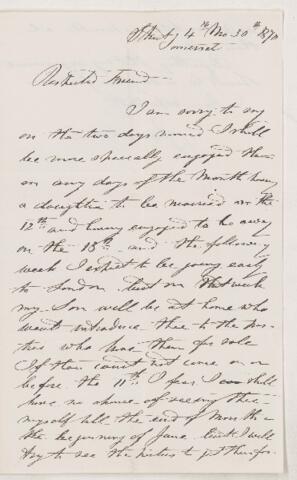 Street 4th Mo 30th 1870
Somerset
Respected Friend -
I am sorry to say
on the two days named I shall
be more specially engaged than
on any days of the Month having
a daughter to be married on the
12th and having engaged to be away
on the 13th - and the following
week I expect to be going early
to London but on that week
my Son will be at home who
would introduce thee to the par-
ties who have them for sale
If thou could not come on or
before the 11th I fear I shall
have no chance of seeing thee
myself till the end of Month or
the beginning of June but I will
try to see the parties to get